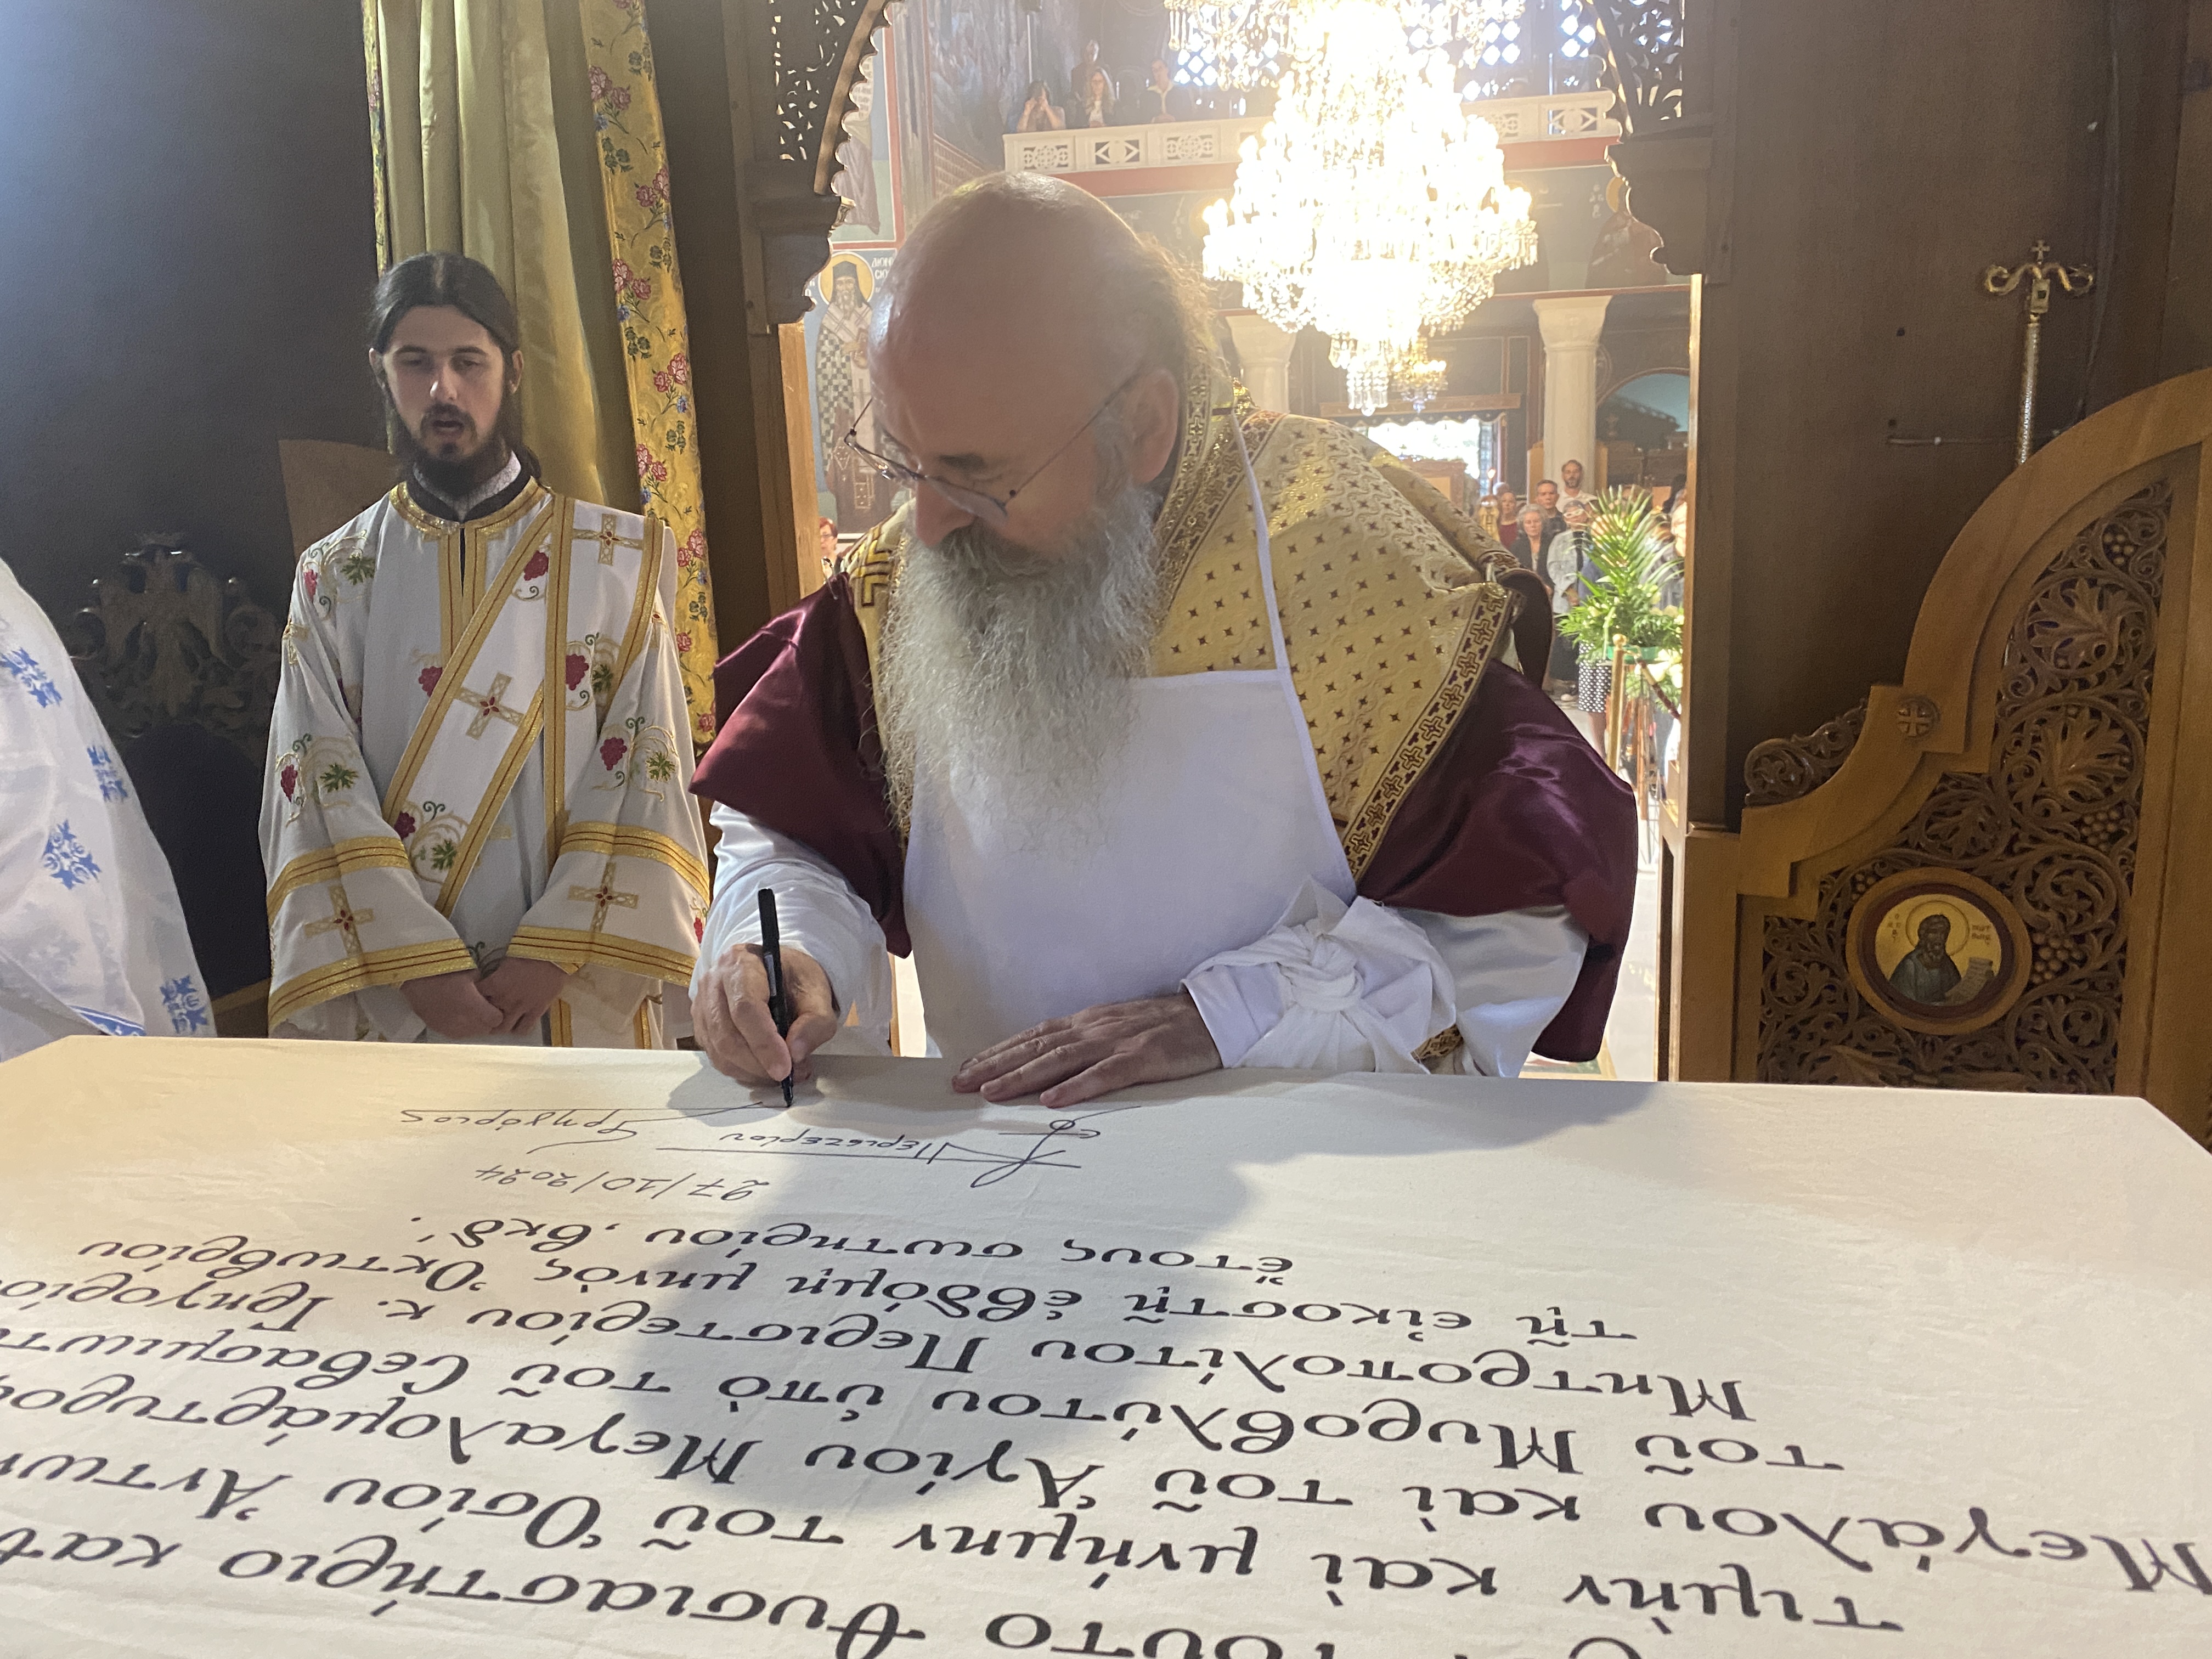 τοῦτο θυσιαστήριο κατ
τιμὴν καὶ μνήμην τοῦ Ὁσίου Ἀντων
Μεγάλου καὶ τοῦ Ἁγίου Μεγαλομάρτυρο
τοῦ Μυροβλύτου ὑπὸ τοῦ Σεβασμιωτ
Μητροπολίτου Περιστερίου κ. Γρηγορίο
τῇ εἰκοστῇ ἑβδόμῃ μηνὸς Ὀκτωβρίου
ἔτους σωτηρίου ͵βκδ´.
27/10/2024
Περιστερίου
Γρηγόριος